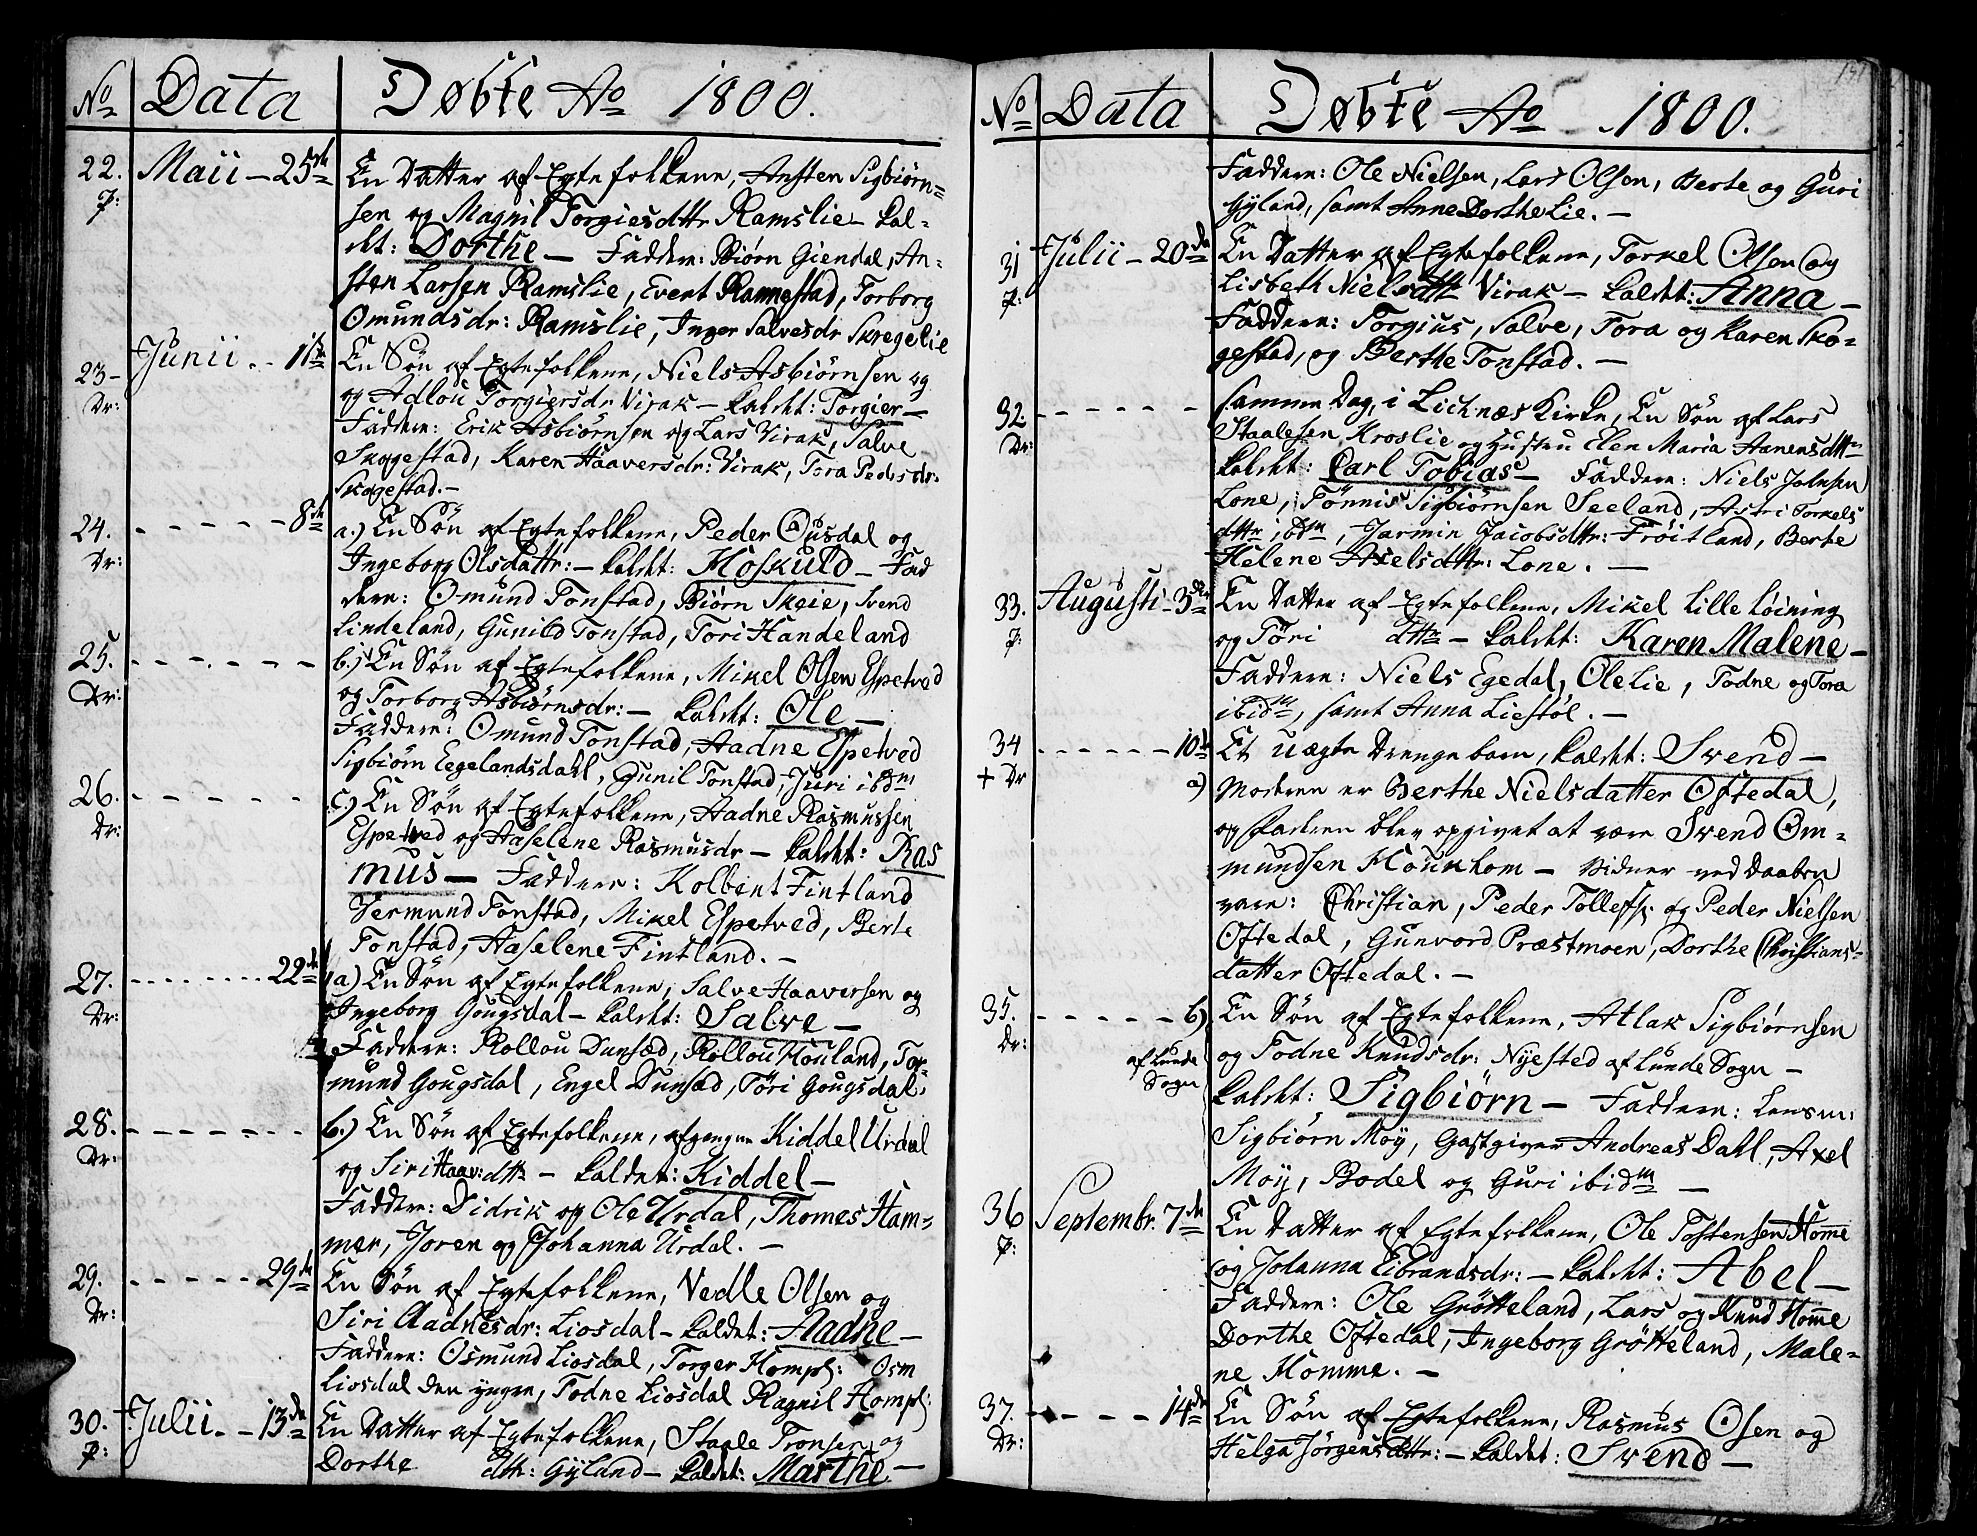 No Data Døbte Ao 1800.
22. Maii - 25de En Datter af Egtefolkene, Ansten Sigbiørn-
P: sen og Magnil Torgiesdttr Ramslie - kal-
det: Dorthe - Faddere: Biørn Giendal, An-
sten Larsen Ramslie, Evert Rannestad, Torborg
Omundsdr: Ramslie, Inger Salvesdr Skregelie
23- Junii - 1ste En Søn af Egtefolkene, Niels Asbiørnsen og
Dr: og Adlou Torgiersdr Virak - kaldet: Torgier -
Faddere: Erik Asbiørnsen og Lars Virak, Salve
Skogestad, Karen Haaversdr: Virak, Tora Pedersdr:
Skogestad. -
24. - - - - - - 8de a.) En Søn af Egtefolkene, Peder Ousdal og
Dr: Ingeborg Olsdattr: - kaldet: Hoskuld - Fad
dere: Omund Tonstad, Biørn Skeie, Svend
Lindeland, Gunild Tonstad, Tori Handeland
25. - - - - - - - b.) En Søn af Egtefolkene, Mikel Olsen Espetved
Dr: og Torborg Asbiørnsdr: - kaldet: Ole -
Faddere: Omund Tonstad, Aadne Espetved
Sigbiørn Eegelandsdahl, Gunil Tonstad, Juri ibdm
26. - - - - - - c.) En Søn af Egtefolkene, Aadne Rasmussen
Dr: Espetved og Aaselene Rasmusdr - kaldet: Ras
mus - Faddere: Kolbent Fintland
Vermund Tonstad, Mikel Espetved, Berte
Tonstad, Aaselene Fintland. -
27. - - - - - - 22de a) En Søn af Egtefolkene, Salve Haaversen og
Dr: Ingeborg Gougsdal - kaldet: Salve -
Faddere: Rollou Dunsæd, Rollou Houland, Tor-
mund Gougsdal, Engel Dunsæd, Töri Gougsdal.
28. - - - - - - - b.) En Søn af Egtefolkene, afgangne Kiddel Urdal
Dr: og Siri Haav:dttr - kaldet: Kiddel -
Faddere: Didrik og Ole Urdal, Thomes Ham-
mer, Joren og Johanna Urdal. -
29. - - - - - 29de En Søn af Egtefolkene, Vedle Olsen og
Dr: Siri Aadnesdr: Liosdal - kaldet: Aadne -
Faddere: Osmund Liosdal, Torger Hompl: Osm
Liosdal den yngre, Todne Liosdal Ragnil Hompl:
30. Julii - - 13de En Datter af Egtefolkene, Staale Tronsen og
P: Dorthe dttr: Gyland - kaldet: Marthe -
No Data Døbte Ao 1800.
Faddere: Ole Nielsen, Lars Olsen, Berte og Guri
Gyland, samt Anne Dorthe Lie. -
31 Julii - 20de En Datter af Egtefolkene, Torkel Olsen og
P: Lisbeth Nielsdttr Virak - kaldet: Anna -
Faddere: Torgius, Salve, Tora og Karen Sko-
gestad, og Berthe Tonstad. -
32 - - - - - - - Samme Dag, i Lichnæs Kirke, En Søn af Lars
Dr: Staalesen Kroslie og Hustru Elen Maria Hanensdttr
kaldet: Carl Tobias - Faddere: Niels Johnsen
Lone, Tönnis Sigbiørnsen Seeland, Astri Torkels
dttr ibdm, Jarmin Jacobsdttr: Fröitland, Berte
Helene Axelsdttr: Lone. -
33. Augusti - 3die En Datter af Egtefolkene, Mikel Lille Löining
P: og Töri dttr - kaldet: Karen Malene -
Faddere: Niels Egedal, Ole Lie, Todne og Tora
ibidm, samt Anna Liestöl. -
34 - - - - - - 10de Et uægte Drengebarn, kaldet: Svend -
+ Dr a) Moderen er Berthe Nielsdatter Oftedal,
og Faderen blev opgivet at være Svend Om-
mundsen Hounhom - Vidner ved Daaben
vare: Christian, Peder Tollefs: og Peder Nielsen
Oftedal, Gunvord Præstmoen, Dorthe Christians-
datter Oftedal. -
35. - - - - - - b) En Søn af Egtefolkene, Atlak Sigbiørnsen
Dr: af Lunde Sogn og Todne Knudsdr: Nyested af Lunde Sogn -
kaldet: Sigbiørn - Faddere: Lensm:
Sigbiørn Moÿ, Gastgiver Andreas Dahl, Axel
Moÿ, Bodel og Guri ibidm -
36 Septembr. 7de En Datter af Egtefolkene, Ole Tostensen Homme
P: og Johanna Eibrandsdr: - kaldet: Abel -
Faddere: Ole Grötteland, Lars og Knud Homme
Dorthe Oftedal, Ingeborg Grötteland, Male-
ne Homme. -
37. - - - - - 14de En Søn af Egtefolkene, Rasmus Olsen og
Dr: Helga Jörgensdttr: - kaldet: Svend -